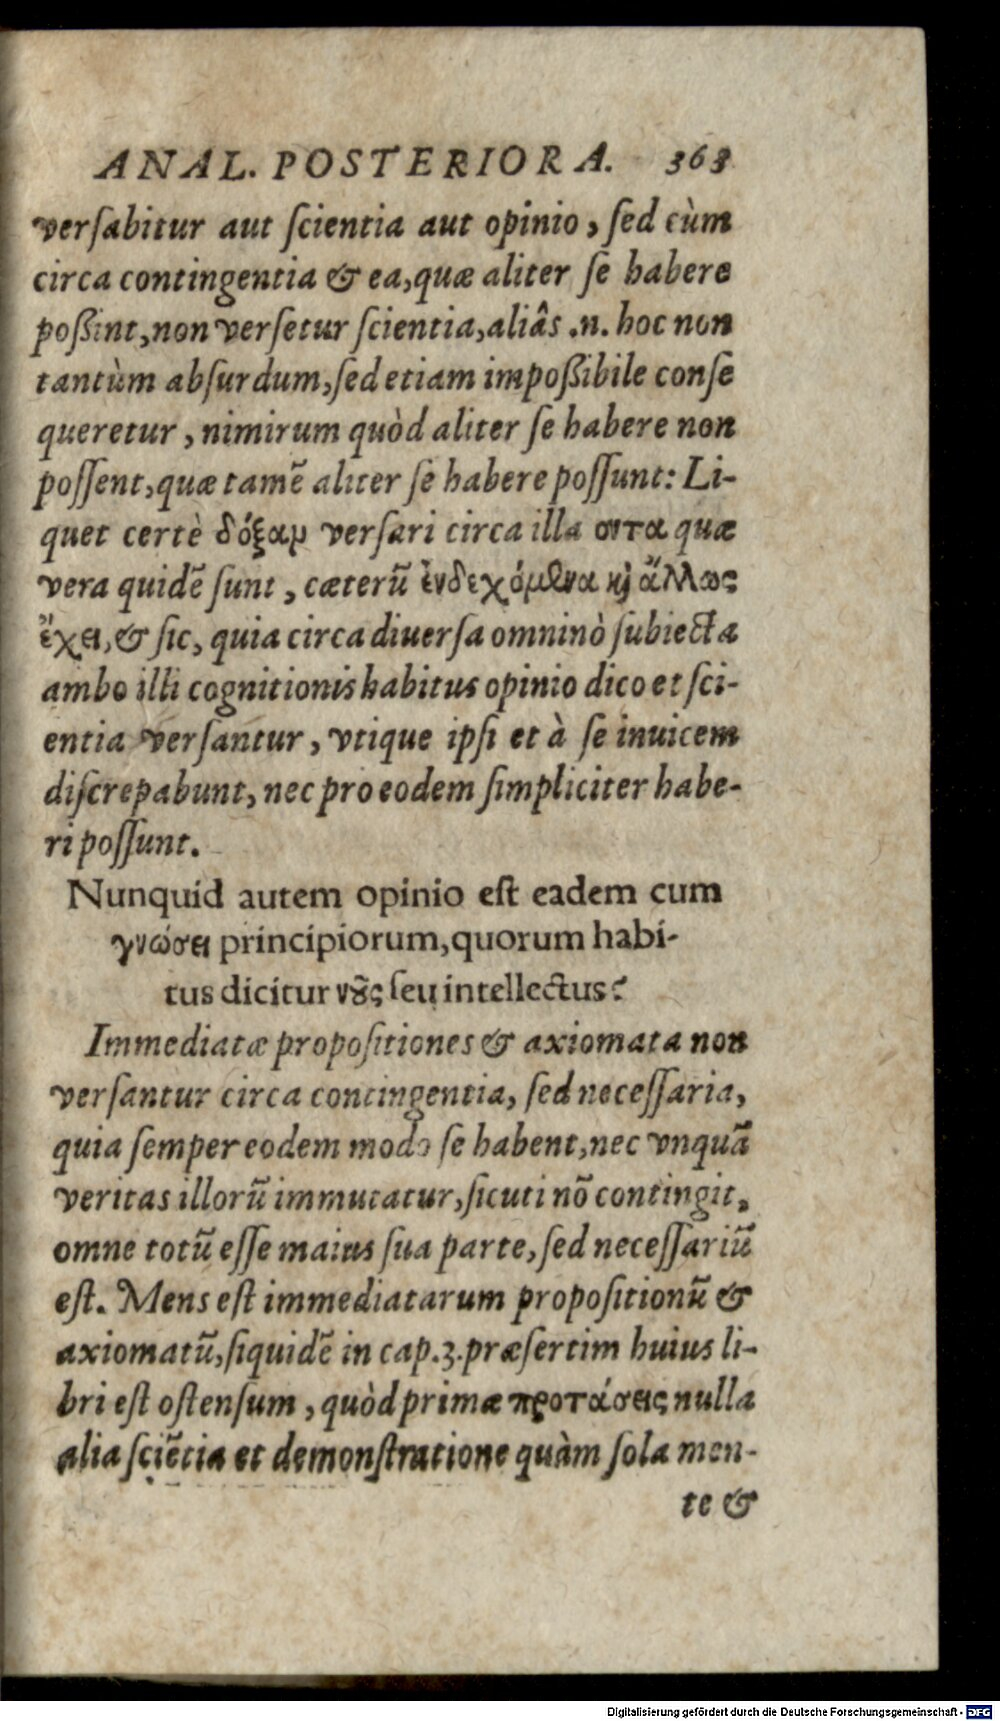 ANAL. POSTERIORA. 363
verſabitur aut ſcientia aut opinio, ſed cùm
circa contingentia & ea, quæ aliter ſe habere
poßint, non verſetur ſcientia, aliâs .n. hoc non
tantùm abſurdum, ſed etiam impoßibile conſe
queretur, nimirum quòd aliter ſe habere non
poſſent, quæ tamẽ aliter ſe habere poſſunt: Li-
quet certè δόξαμ verſari circa illa οντα quæ
vera quidẽ ſunt, cæterũ ἐνδεχόμενα κὶ ἄλλως
ἔχει, & ſic, quia circa diuerſa omninò ſubiecta
ambo illi cognitionis habitus opinio dico et ſci-
entia verſantur, vtique ipſi et à ſe inuicem
diſcrepabunt, nec pro eodem ſimpliciter habe-
ri poſſunt.
Nunquid autem opinio eſt eadem cum
γνώσει principiorum, quorum habi-
tus dicitur νȣ͂ς ſeu intellectus?
Immediatæ propoſitiones & axiomata non
verſantur circa contingentia, ſed neceſſaria,
quia ſemper eodem modo ſe habent, nec vnquã
veritas illorũ immutatur, ſicuti nõ contingit,
omne totũ eſſe maius ſua parte, ſed neceſſariũ
eſt. Mens eſt immediatarum propoſitionũ &
axiomatũ, ſiquidẽ in cap. 3. præſertim huius li-
bri eſt oſtenſum, quòd primæ προτάσεις nulla
alia ſciẽtia et demonſtratione quàm ſola men-
te &
Digitalisierung gefördert durch die Deutsche Forschungsgemeinschaft - DFG